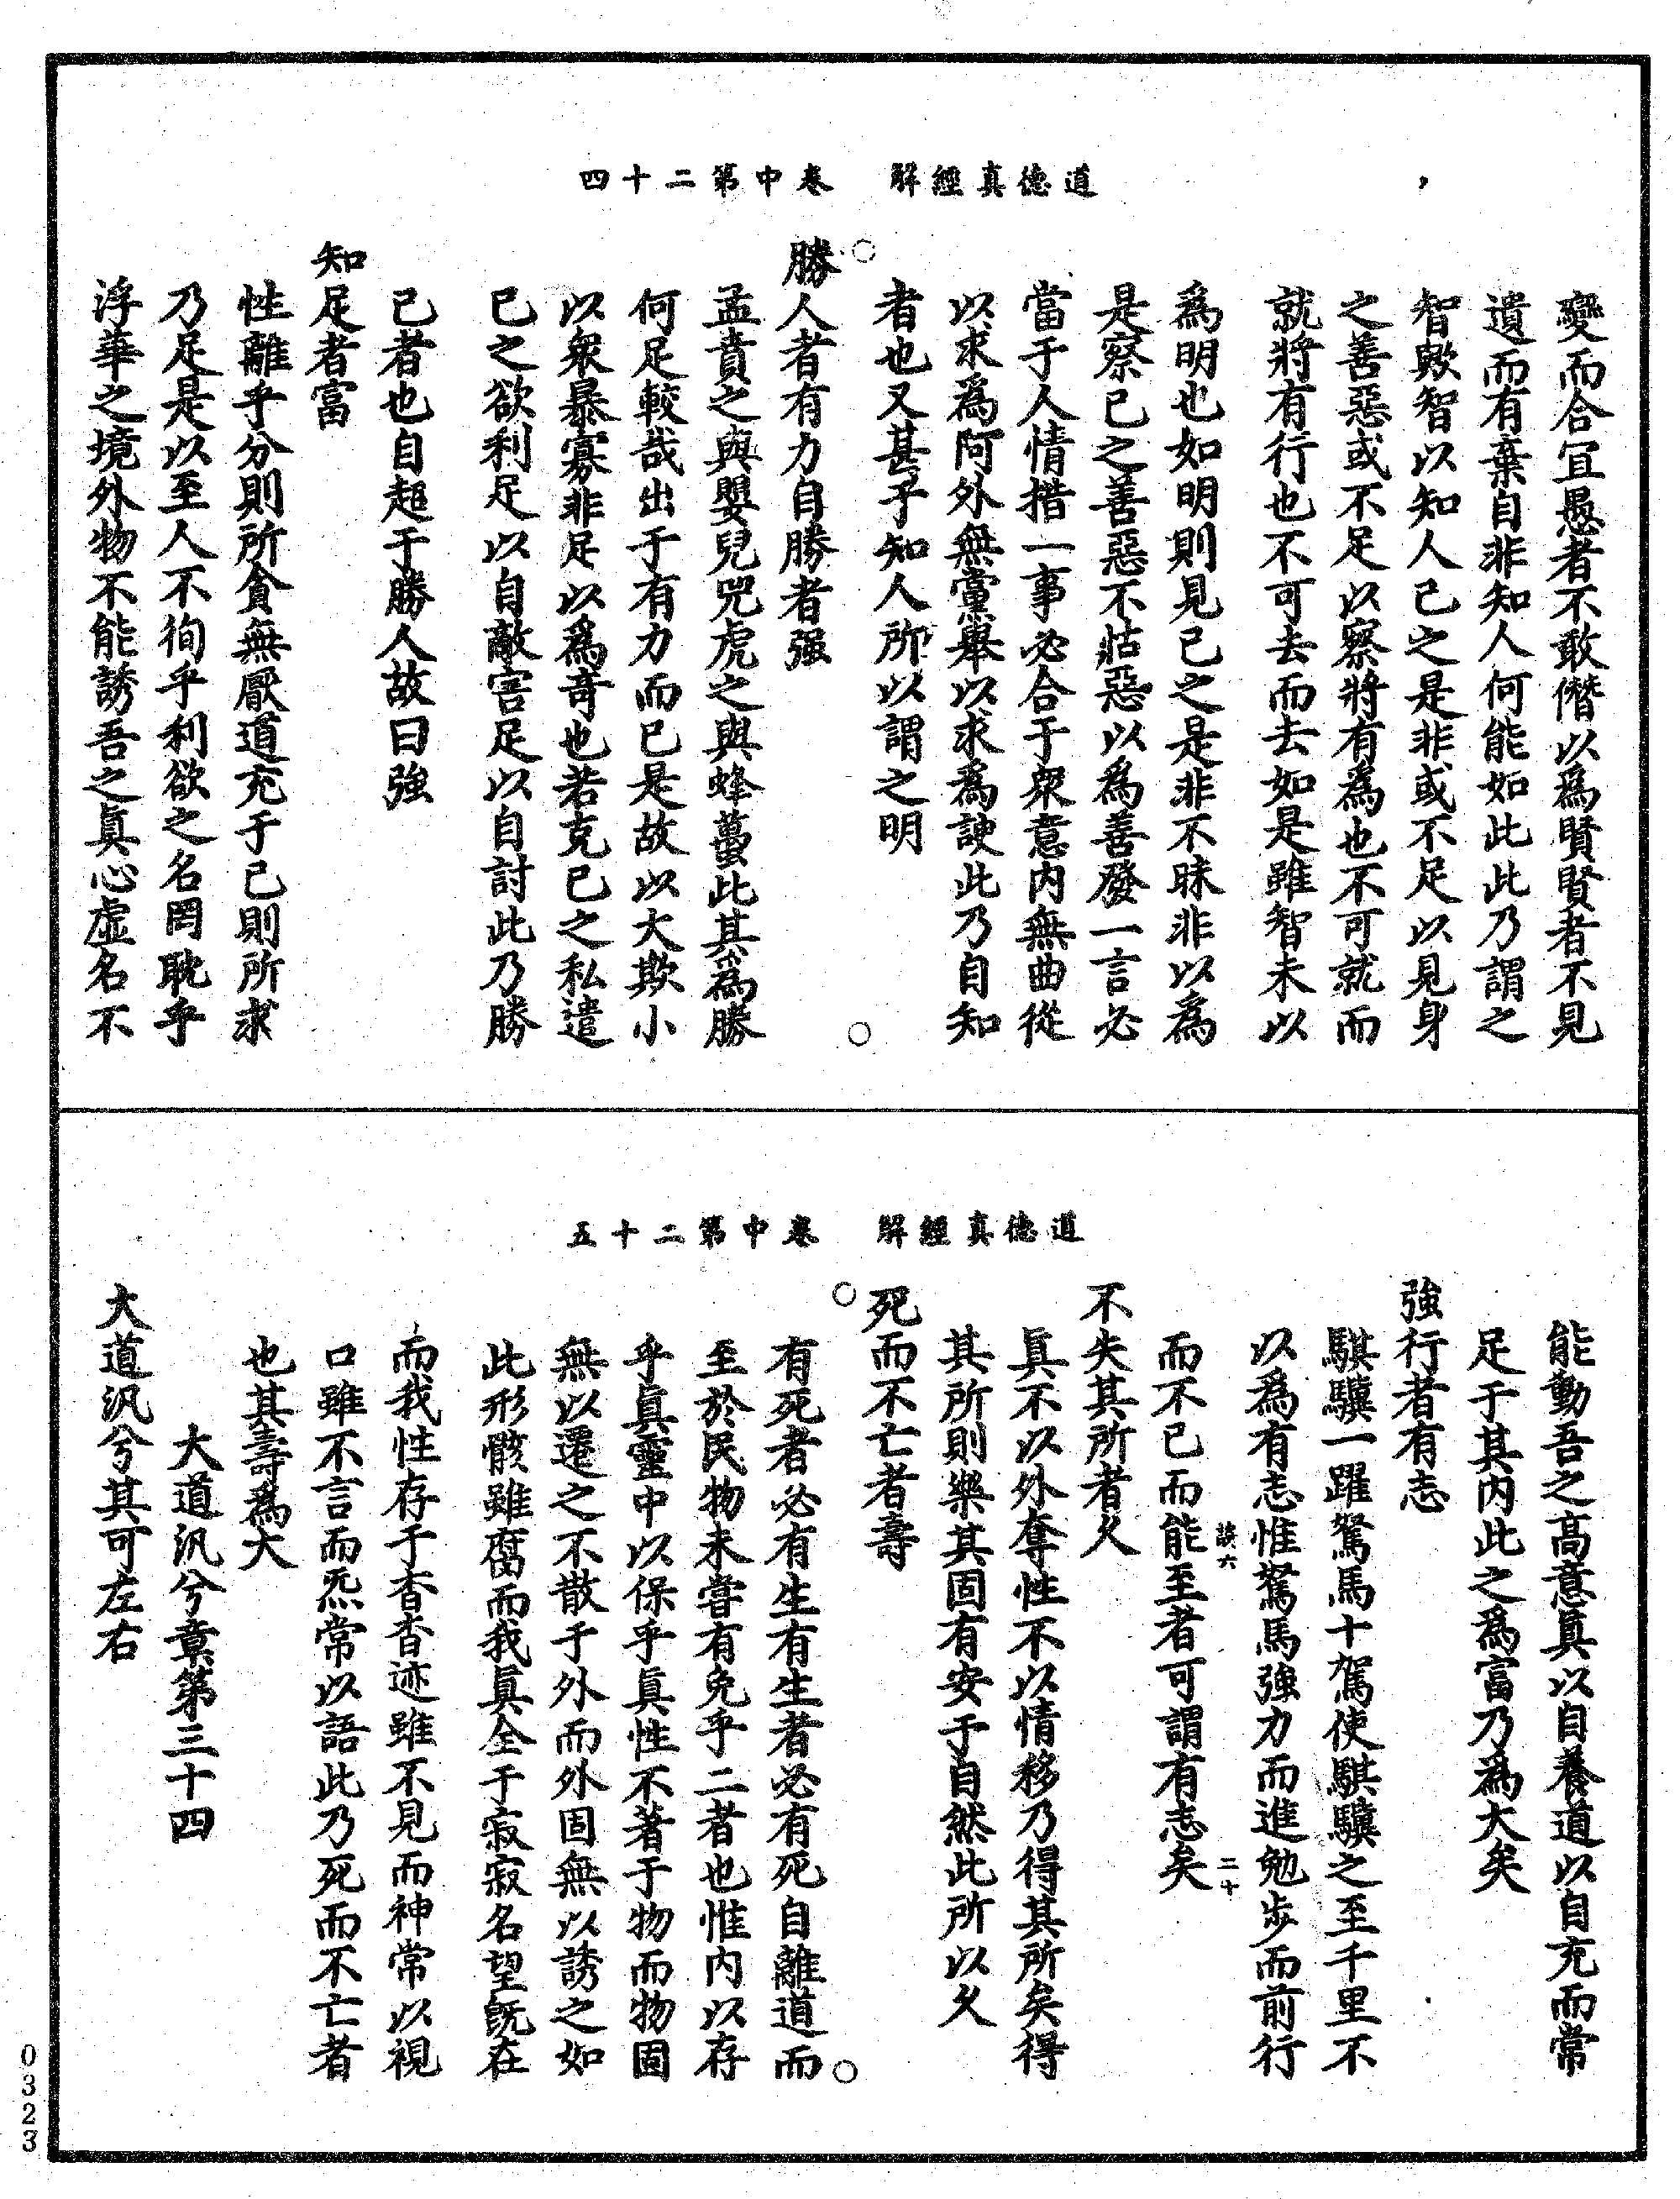 道德真經解　卷中第二十四
變而合宜愚者不敢僭以爲賢賢者不見
遺而有棄自非知人何能如此此乃謂之
智歟智以知人己之是非或不足以見身
之善惡或不足以察將有爲也不可就而
就將有行也不可去而去如是雖智未以
爲明也如明則見己之是非不昧非以爲
是察己之善惡不怙惡以爲善發一言必
當于人情措一事必合于衆意內無曲從
以求爲阿外無黨舉以求爲諛此乃自知
者也又甚乎知人所以謂之明
勝人者有力自勝者强
孟賁之與嬰兒兕虎之與蜂蠆此其爲勝
何足較哉出于有力而已是故以大欺小
以衆暴寡非足以爲奇也若克己之私遣
己之欲利足以自敵害足以自討此乃勝
己者也自超于勝人故曰強
知足者富
性離乎分則所貪無厭道充于己則所求
乃足是以至人不徇乎利欲之名罔耽乎
浮華之境外物不能誘吾之眞心虛名不
道德真經解　卷中第二十五
能動吾之高意眞以自養道以自充而常
足于其內此之爲富乃爲大矣
強行者有志
騏驥一躍駑馬十駕使騏驥之至千里不
以爲有志惟駑馬強力而進勉步而前行
談六　二十
而不已而能至者可謂有志矣
不失其所者久
眞不以外奪性不以情移乃得其所矣得
其所則樂其固有安于自然此所以久
死而不亡者壽
有死者必有生有生者必有死自離道而
至於民物未嘗有免乎二者也惟內以存
乎眞靈中以保乎眞性不著于物而物固
無以遷之不散于外而外固無以誘之如
此形骸雖腐而我眞全于寂寂名望旣在
而我性存于杳杳迹雖不見而神常以視
口雖不言而炁常以語此乃死而不亡者
也其壽爲大
大道汎兮章第三十四
大道汎兮其可左右
0323